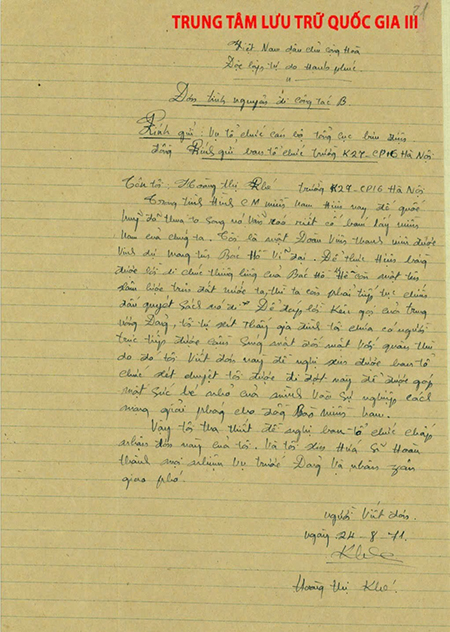 TRUNG TÂM LƯU TRỮ QUỐC GIA III
21
Việt Nam dân chủ cộng hoà
Độc lập tự do hạnh phúc
Đơn tình nguyện đi công tác B
Kính gửi: Vụ tổ chức cán bộ tổng cục bưu điện
đồng kính gửi ban tổ chức trường K27-CP16 Hà Nội
Tên tôi: Hoàng Thị Khé trường K27-CP16 Hà Nội
Trong tình hình CM miền nam hiện nay đế quốc
Mỹ đã thua to song nó vẫn cố bám lấy miền
Nam của chúng ta. Tôi là một Đoàn viên thanh niên được
vinh dự mang tên Bác Hồ vĩ đại. Để thực hiện bằng
được lời di chúc thiêng liêng của Bác Hồ "Hễ còn một tên
xâm lược trên đất nước ta, thì ta còn phải tiếp tục chiến
đấu quyết sạch nó đi". Để đáp lời kêu gọi của trung
ương Đảng, tôi tự xét thấy gia đình tôi chưa có người
trực tiếp được cầm súng mặt đối mặt với quân thù
do đó tôi viết đơn này đề nghị xin được ban tổ
chức xét duyệt tôi được đi đợt này để được góp
một sức bé nhỏ của mình vào sự nghiệp cách
mạng giải phóng cho đồng Bào miền nam.
Vậy tôi tha thiết đề nghị ban tổ chức chấp
nhận đơn này của tôi. Và tôi xin hứa sẽ hoàn
thành mọi nhiệm vụ trước Đảng và nhân dân
giao phó.
người viết đơn.
ngày 24-8-71.
Khé
Hoàng Thị Khé